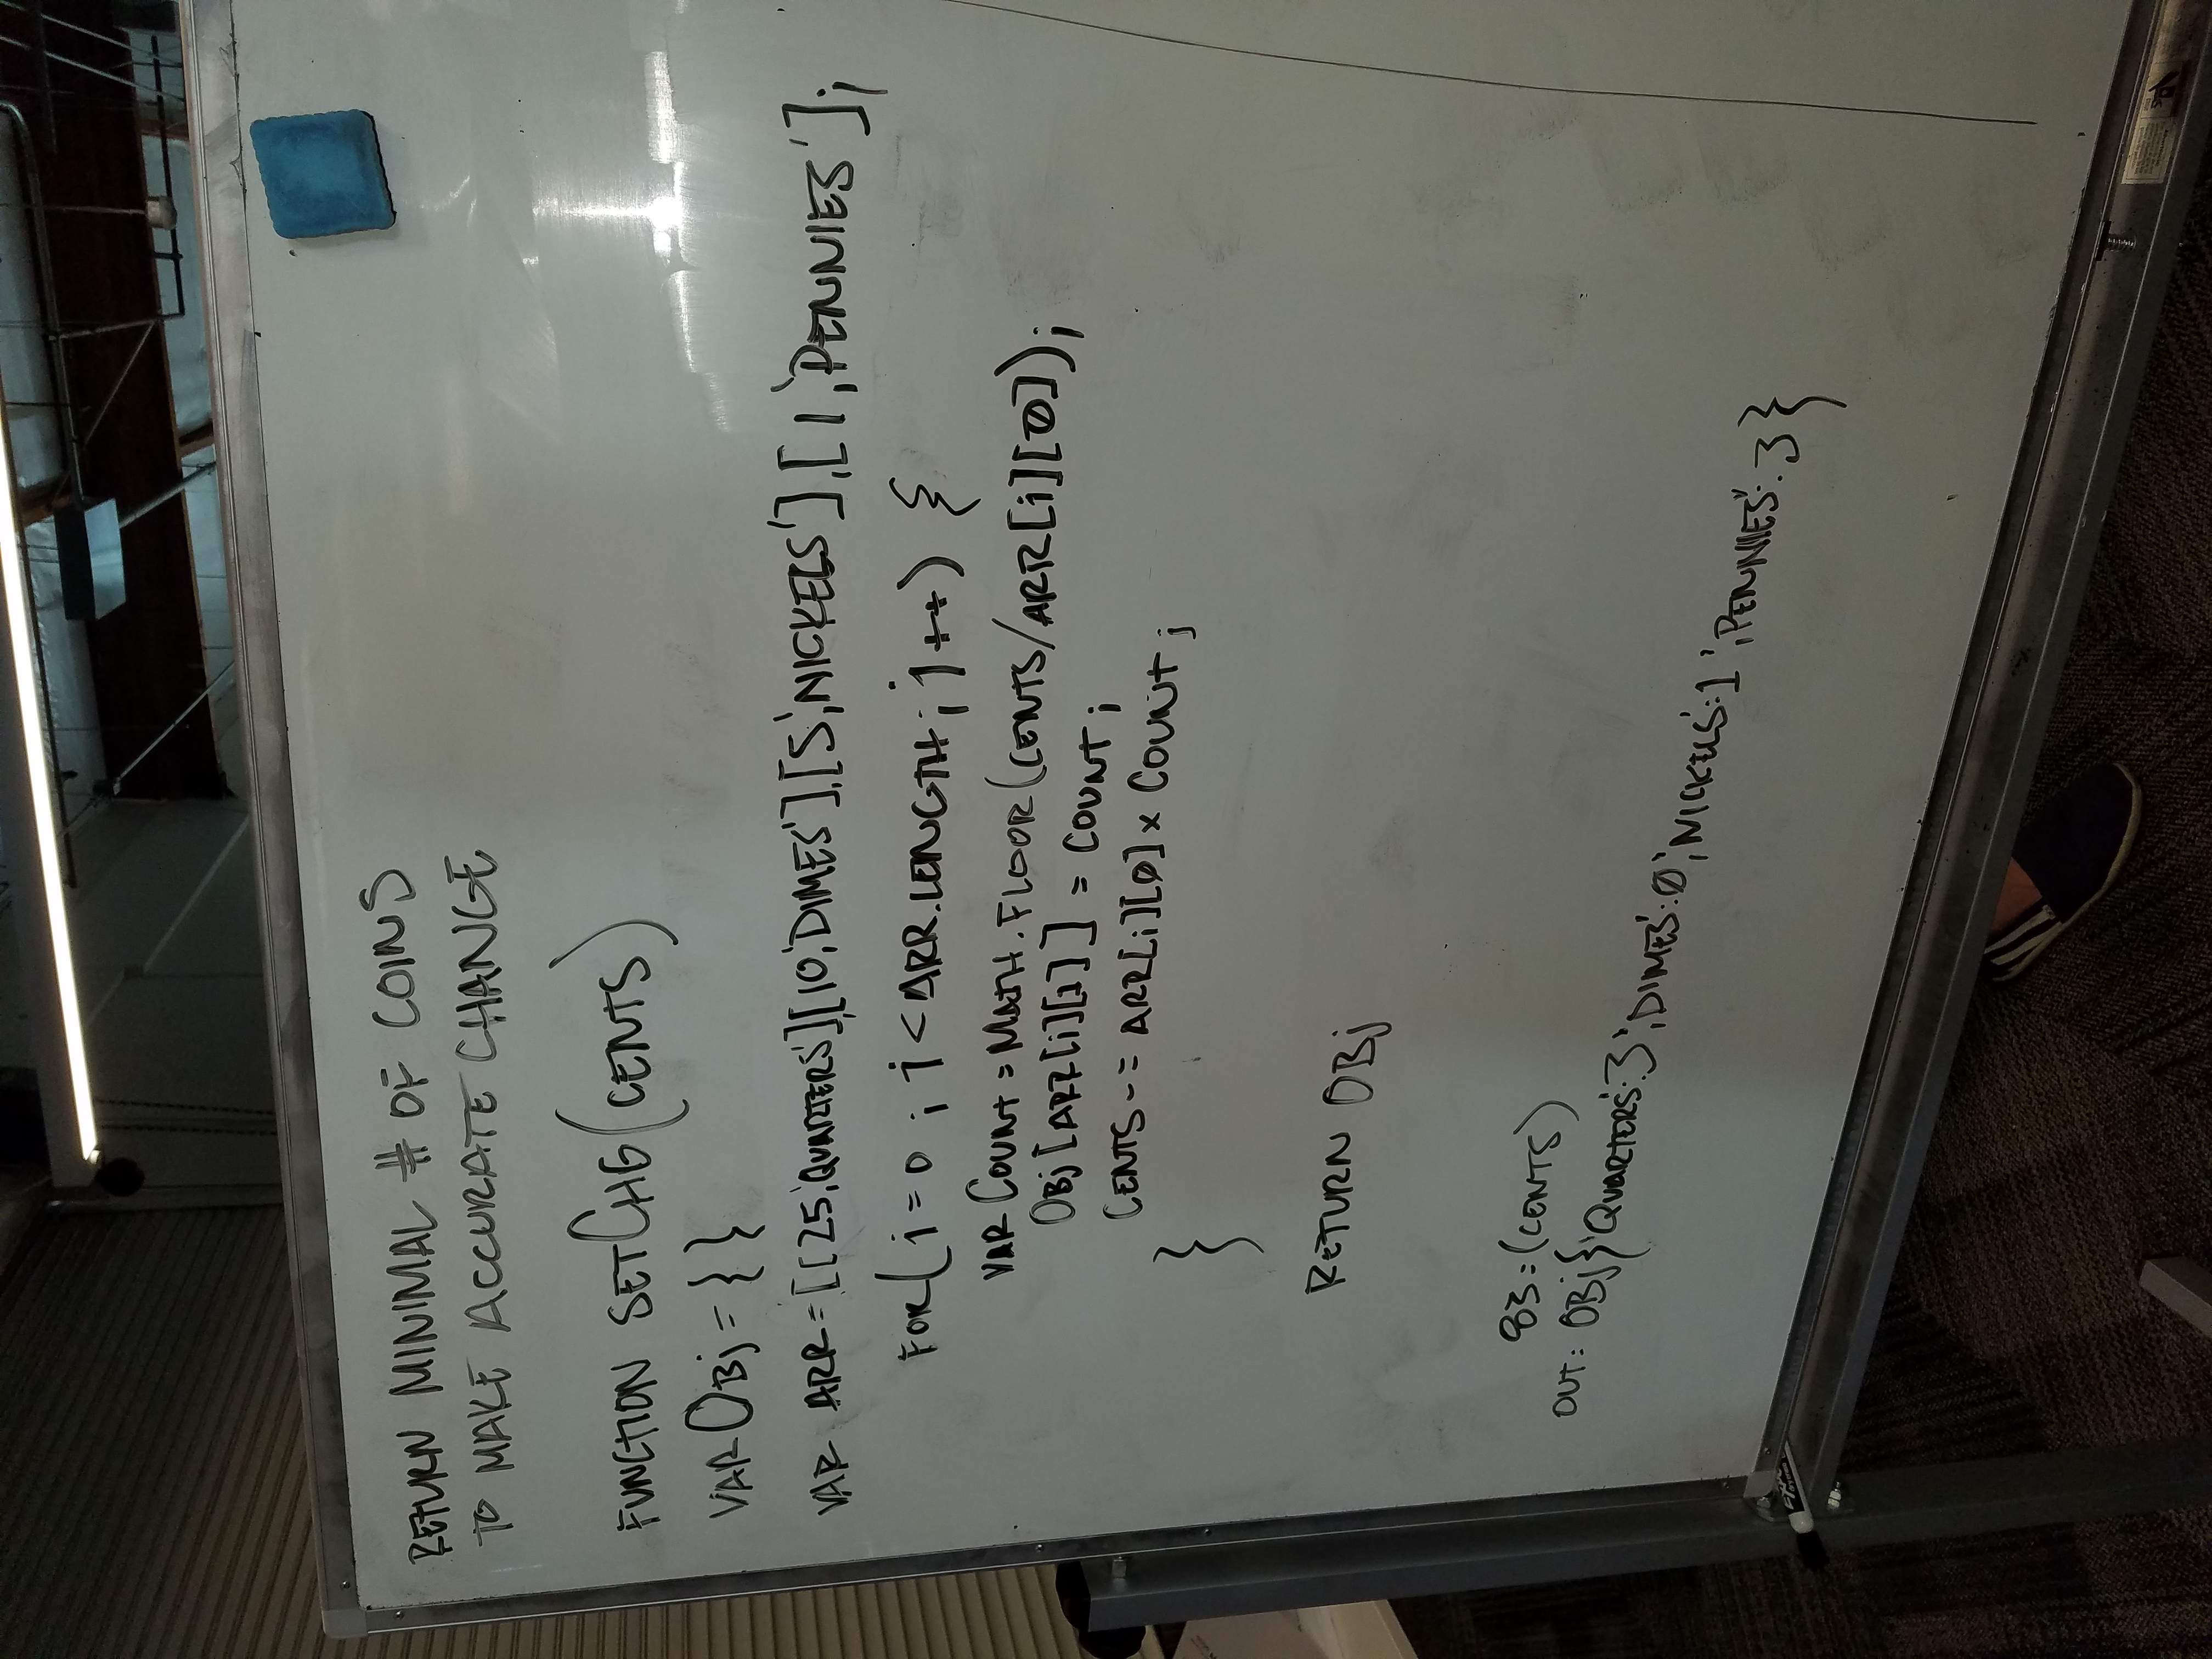 RETURN MINIMAL # OF COINS
TO MAKE ACCURATE CHANGE
FUNCTION SETCHG(CENTS)
VAR OBj = { }
VAR ARR = [[25,'QUARTERS'],[10,'DIMES'],[5,'NICKELS'],[1,'PENNIES'];
FOR( i = 0 ; i < ARR.LENGTH ; i ++ ) {
VAR COUNT = MATH.FLOOR(CENTS/ARR[i][0]);
OBj [ARR[i][1]] = COUNT ;
CENTS -= ARR[i][0] x COUNT ;
}
RETURN OBj
83 = (CENTS)
OUT: OBj{'QUARTERS':3,'DIMES':0,'NICKELS':1,'PENNIES':3}
EXPO